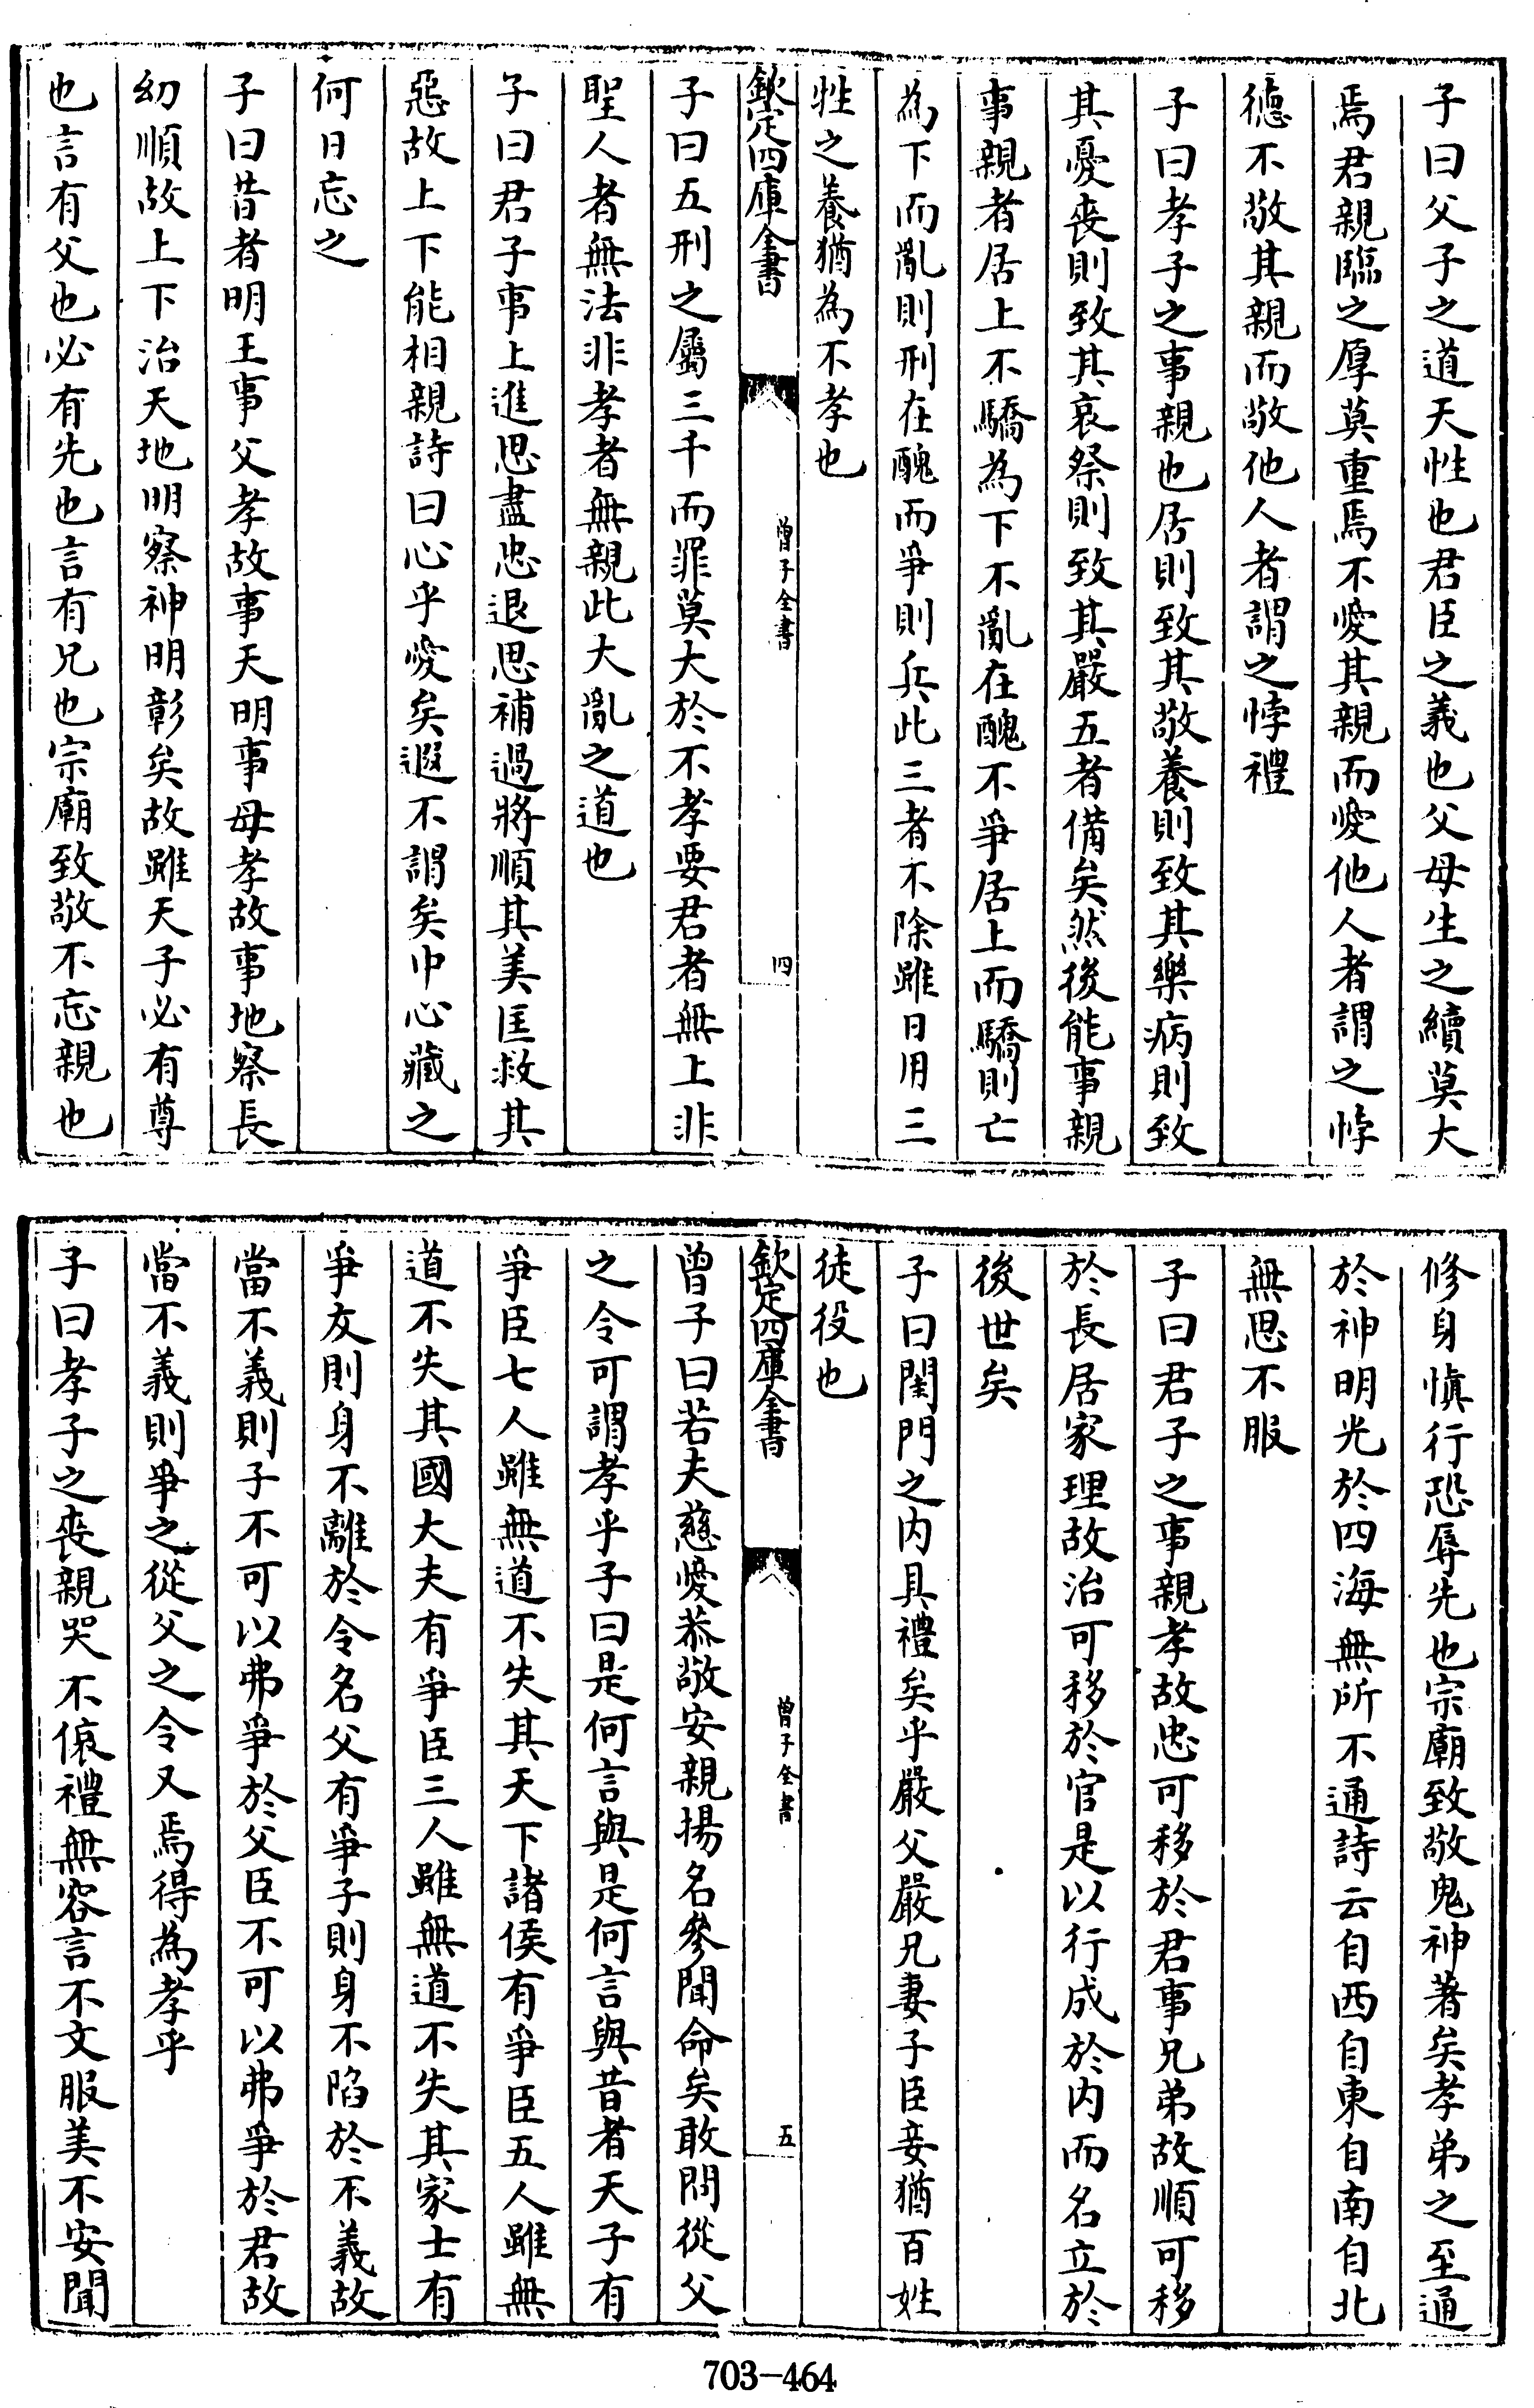 子曰父子之道天性也君臣之義也父母生之續莫大
焉君親臨之厚莫重焉不愛其親而愛他人者謂之悖
德不敬其親而敬他人者謂之悖禮
子曰孝子之事親也居則致其敬養則致其樂病則致
其憂喪則致其哀祭則致其嚴五者備矣然後能事親
事親者居上不驕為下不亂在醜不爭居上而驕則亡
為下而亂則刑在醜而爭則兵此三者不除雖日用三
牲之養猶為不孝也
欽定四庫全書 曾子全書 四
子曰五刑之屬三千而罪莫大於不孝要君者無上非
聖人者無法非孝者無親此大亂之道也
子曰君子事上進思盡忠退思補過將順其美匡救其
惡故上下能相親詩曰心乎愛矣遐不謂矣中心藏之
何日忘之
子曰昔者明王事父孝故事天明事母孝故事地察長
幼順故上下治天地明察神明彰矣故雖天子必有尊
也言有父也必有先也言有兄也宗廟致敬不忘親也
修身慎行恐辱先也宗廟致敬鬼神著矣孝弟之至通
於神明光於四海無所不通詩云自西自東自南自北
無思不服
子曰君子之事親孝故忠可移於君事兄弟故順可移
於長居家理故治可移於官是以行成於內而名立於
後世矣
子曰閨門之內具禮矣乎嚴父嚴兄妻子臣妾猶百姓
徒役也
欽定四庫全書 曾子全書 五
曾子曰若夫慈愛恭敬安親揚名參聞命矣敢問從父
之令可謂孝乎子曰是何言與是何言與昔者天子有
爭臣七人雖無道不失其天下諸侯有爭臣五人雖無
道不失其國大夫有爭臣三人雖無道不失其家士有
爭友則身不離於令名父有爭子則身不陷於不義故
當不義則子不可以弗爭於父臣不可以弗爭於君故
當不義則爭之從父之令又焉得為孝乎
子曰孝子之喪親哭不偯禮無容言不文服美不安聞
703-464